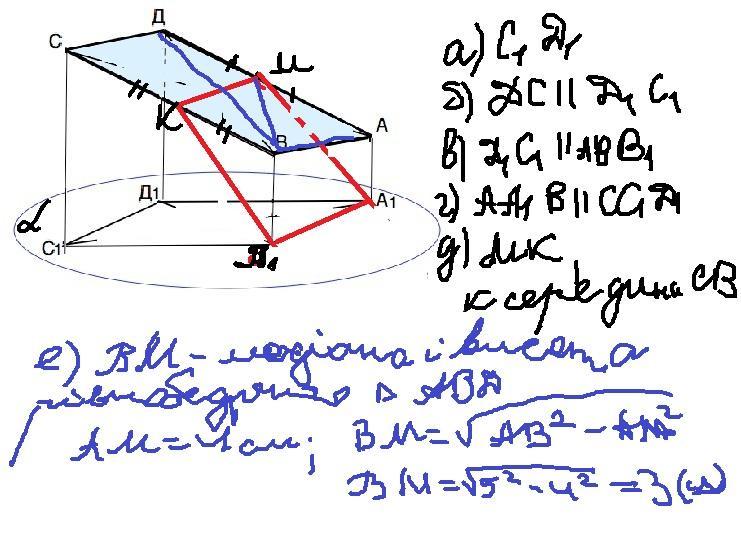 Д
С
М
К
В
А
Д1
А1
С1
В1
α
а) С1 Д1
б) ДС || Д1 С1
в) Д1С1 || АВВ1
г) АА1 В || СС1Д1
д) МК
К середина СВ
е) ВМ - медіана і висота
рівнобедреного Δ АВД
АМ = 4 см; ВМ = √АВ² - АМ²
ВМ = √5² - 4² = 3 (см)